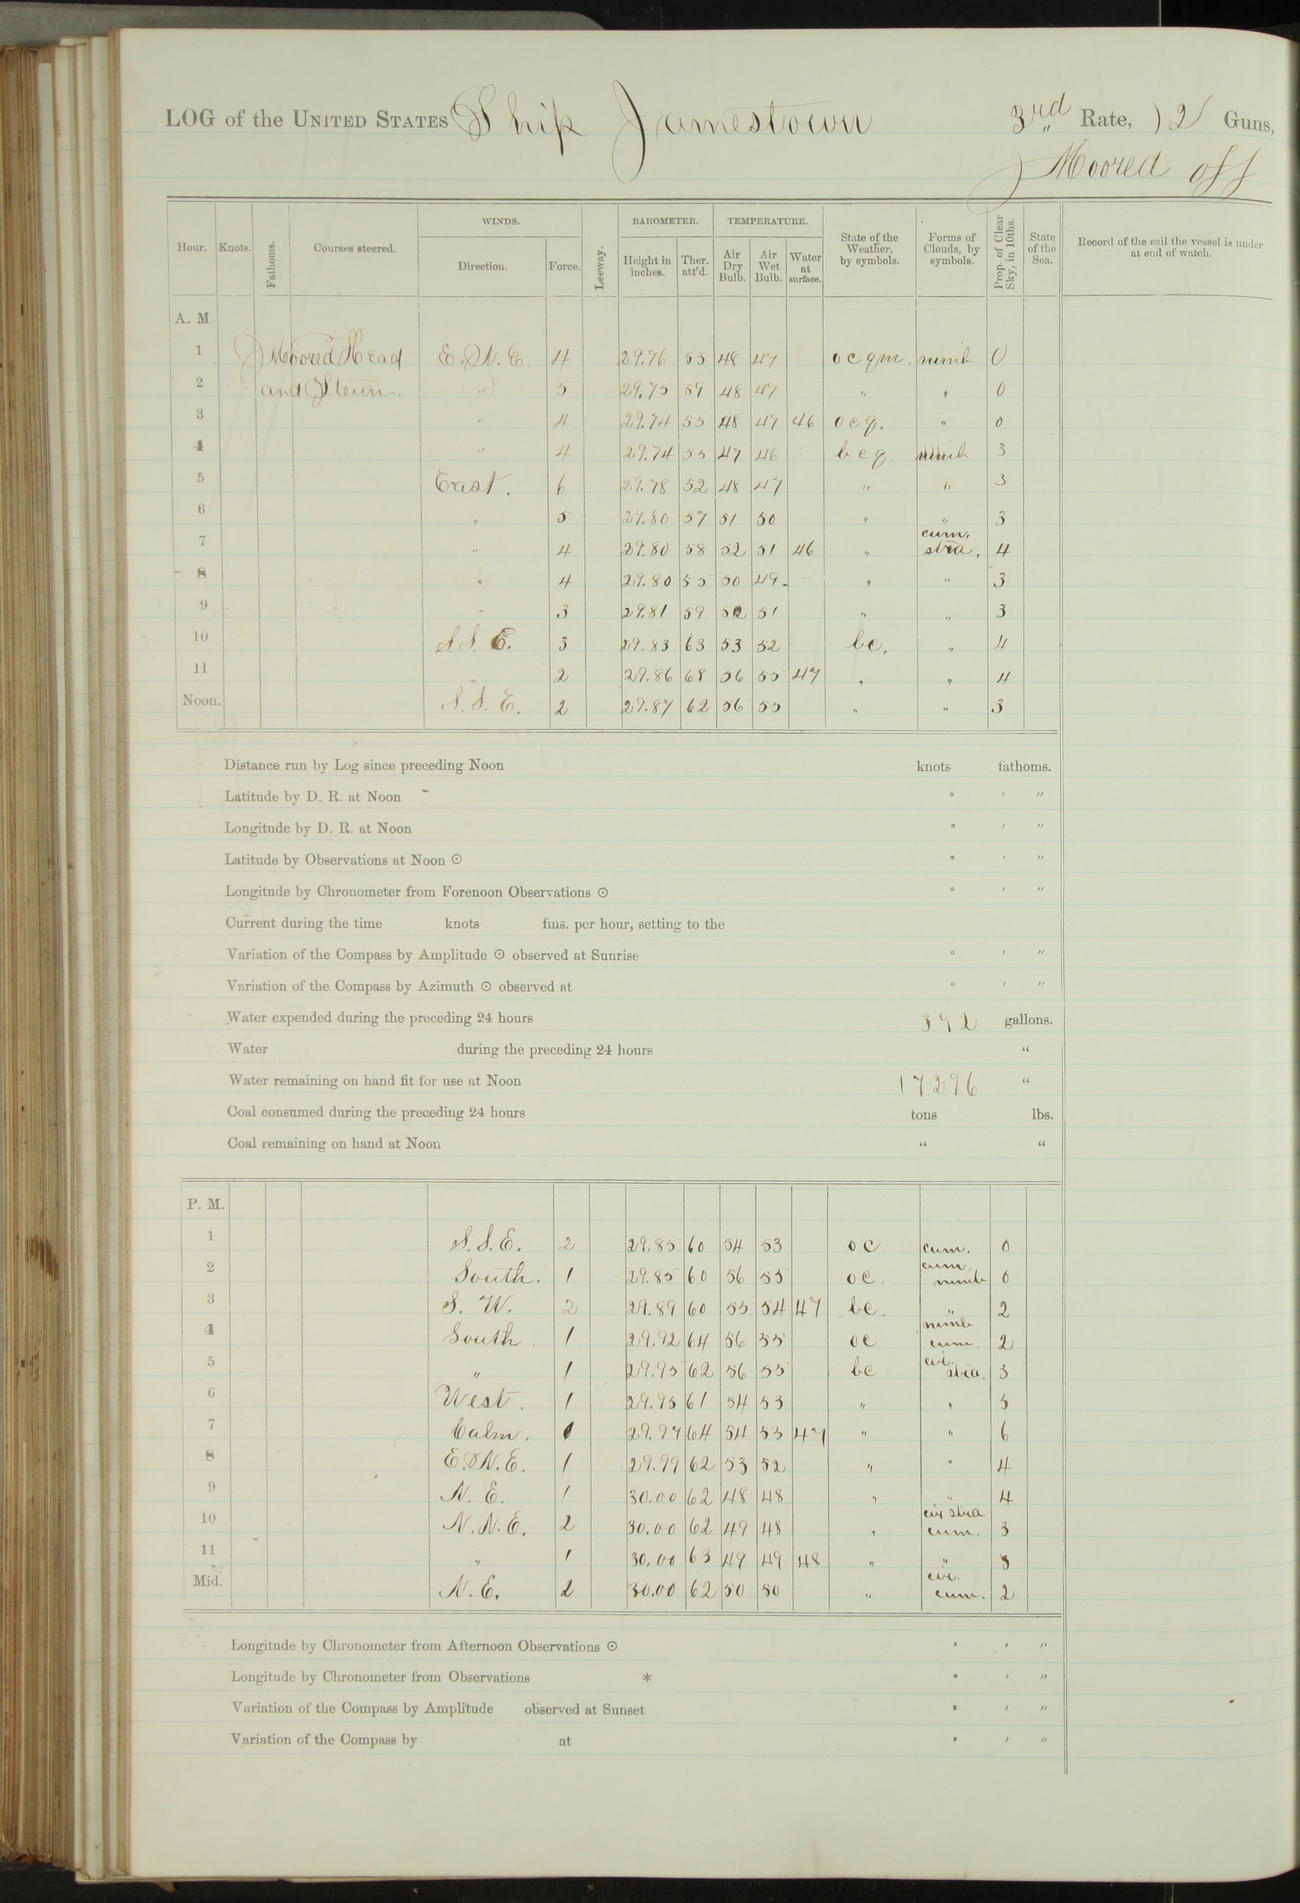 LOG of the UNITED STATES Ship Jamestown 3rd Rate, 12 Guns,
Moored off
Hour. Knots. Fathoms. Courses steered. WINDS. Direction. Force. Leeway. BAROMETER. Height in inches. Ther. att'd. TEMPERATURE. Air Dry Bulb. Air Wet Bulb. Water at surface. State of the Weather, by symbols. Forms of Clouds, by symbols. Prop. of Clear Sky, in 10ths. State of the Sea. Record of the sail the vessel is under at end of watch.
A. M.
1 Moored Head E.N.E. 4 29.76 53 48 47 ocqm. nimb 0
2 and Stern. " 5 29.75 59 48 47 " " 0
3 " 4 29.74 55 48 47 46 ocq. " 0
4 " 4 29.74 55 47 46 bcq nimb 3
5 East. 6 29.78 52 48 47 " " 3
6 " 5 29.80 57 51 50 " " 3
7 " 4 29.80 58 52 51 46 " cum. stra. 4
8 " 4 29.80 55 50 49 " " 3
9 " 3 29.81 59 52 51 " " 3
10 S.S.E. 3 29.83 63 53 52 bc. " 4
11 " 2 29.86 68 56 55 47 " " 4
Noon. S.S.E. 2 29.87 62 56 55 " " 3
Distance run by Log since preceding Noon knots fathoms.
Latitude by D. R. at Noon ° ′ ″
Longitude by D. R. at Noon ° ′ ″
Latitude by Observations at Noon ☉ ° ′ ″
Longitude by Chronometer from Forenoon Observations ☉ ° ′ ″
Current during the time knots fms. per hour, setting to the
Variation of the Compass by Amplitude ☉ observed at Sunrise ° ′ ″
Variation of the Compass by Azimuth ☉ observed at ° ′ ″
Water expended during the preceding 24 hours 392 gallons.
Water during the preceding 24 hours "
Water remaining on hand fit for use at Noon 17296 "
Coal consumed during the preceding 24 hours tons lbs.
Coal remaining on hand at Noon " "
P. M.
1 S.S.E. 2 29.85 60 54 53 oc cum. 0
2 South. 1 29.85 60 56 55 oc. cum. nimb 0
3 S. W. 2 29.89 60 55 54 47 bc. " 2
4 South. 1 29.92 64 56 55 oc nimb cum. 2
5 " 1 29.95 62 56 55 bc cir. stra. 3
6 West. 1 29.95 61 54 53 " " 5
7 Calm. 0 29.97 64 54 53 47 " " 6
8 E.N.E. 1 29.99 62 53 52 " " 4
9 N. E. 1 30.00 62 48 48 " " 4
10 N.N.E. 2 30.00 62 49 48 " cir stra cum. 3
11 " 1 30.00 63 49 49 48 " " 3
Mid. N.E. 2 30.00 62 50 50 " cir. cum. 2
Longitude by Chronometer from Afternoon Observations ☉ ° ′ ″
Longitude by Chronometer from Observations * ° ′ ″
Variation of the Compass by Amplitude observed at Sunset ° ′ ″
Variation of the Compass by at ° ′ ″